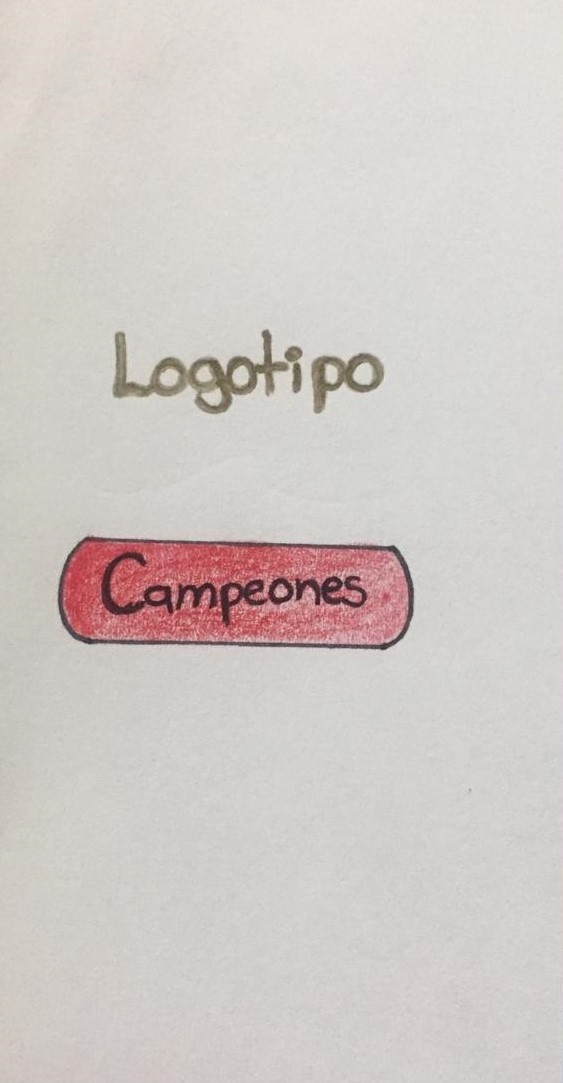 Logotipo
Campeones